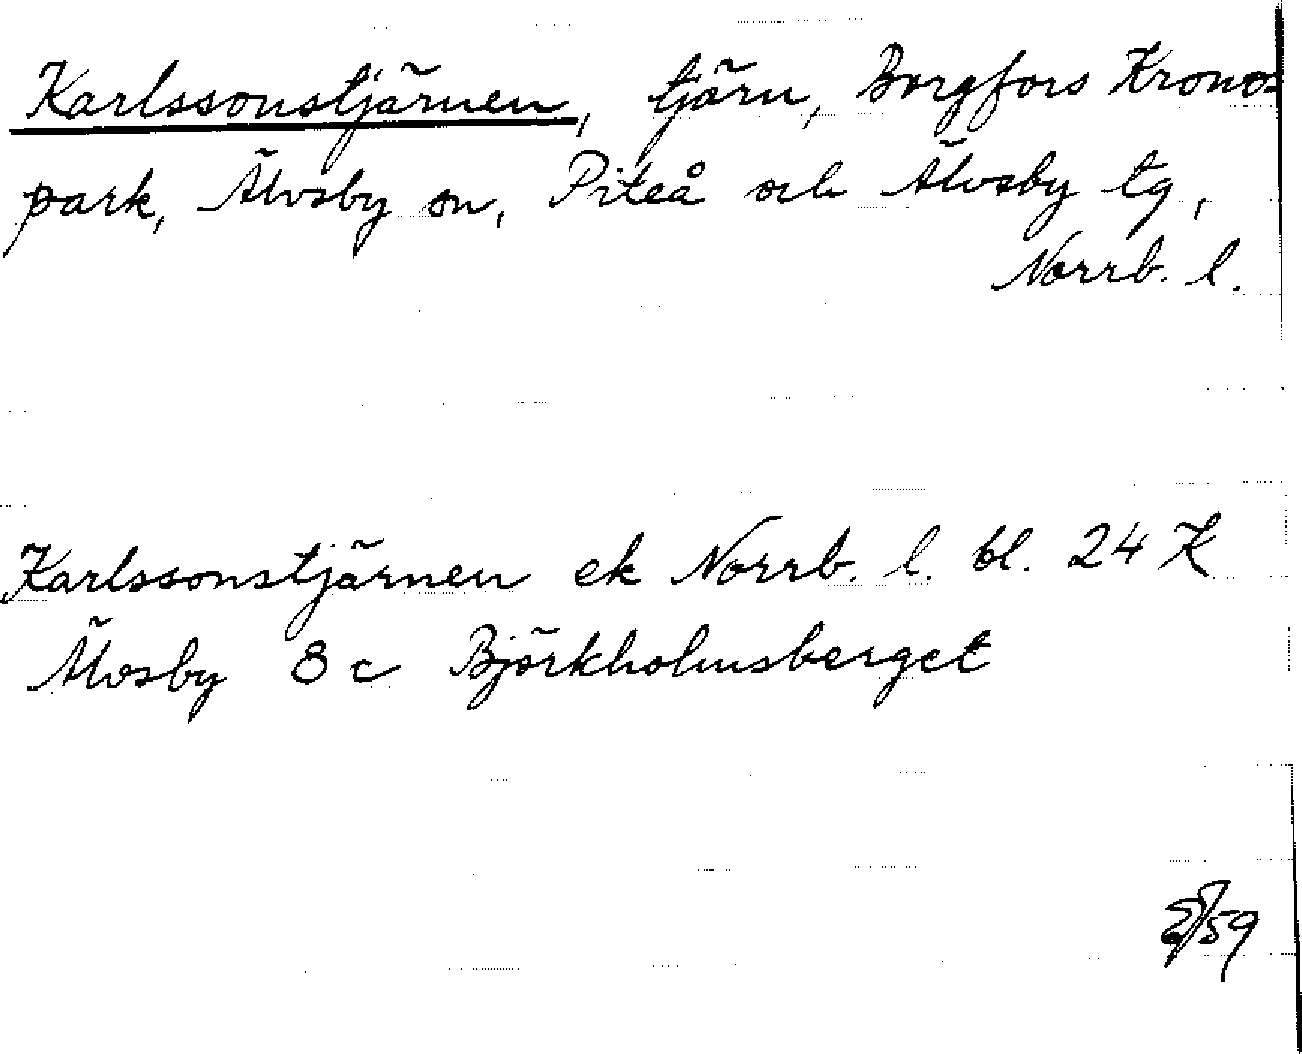 Karlssonstjärnen, tjärn, Borgfors Krono=
park, Älvsby sn, Piteå och Älvsby tg,
Norrb. l.
Karlssonstjärnen ek Norrb. l. bl. 24 K
Älvsby 8 c Björkholmsberget
/59